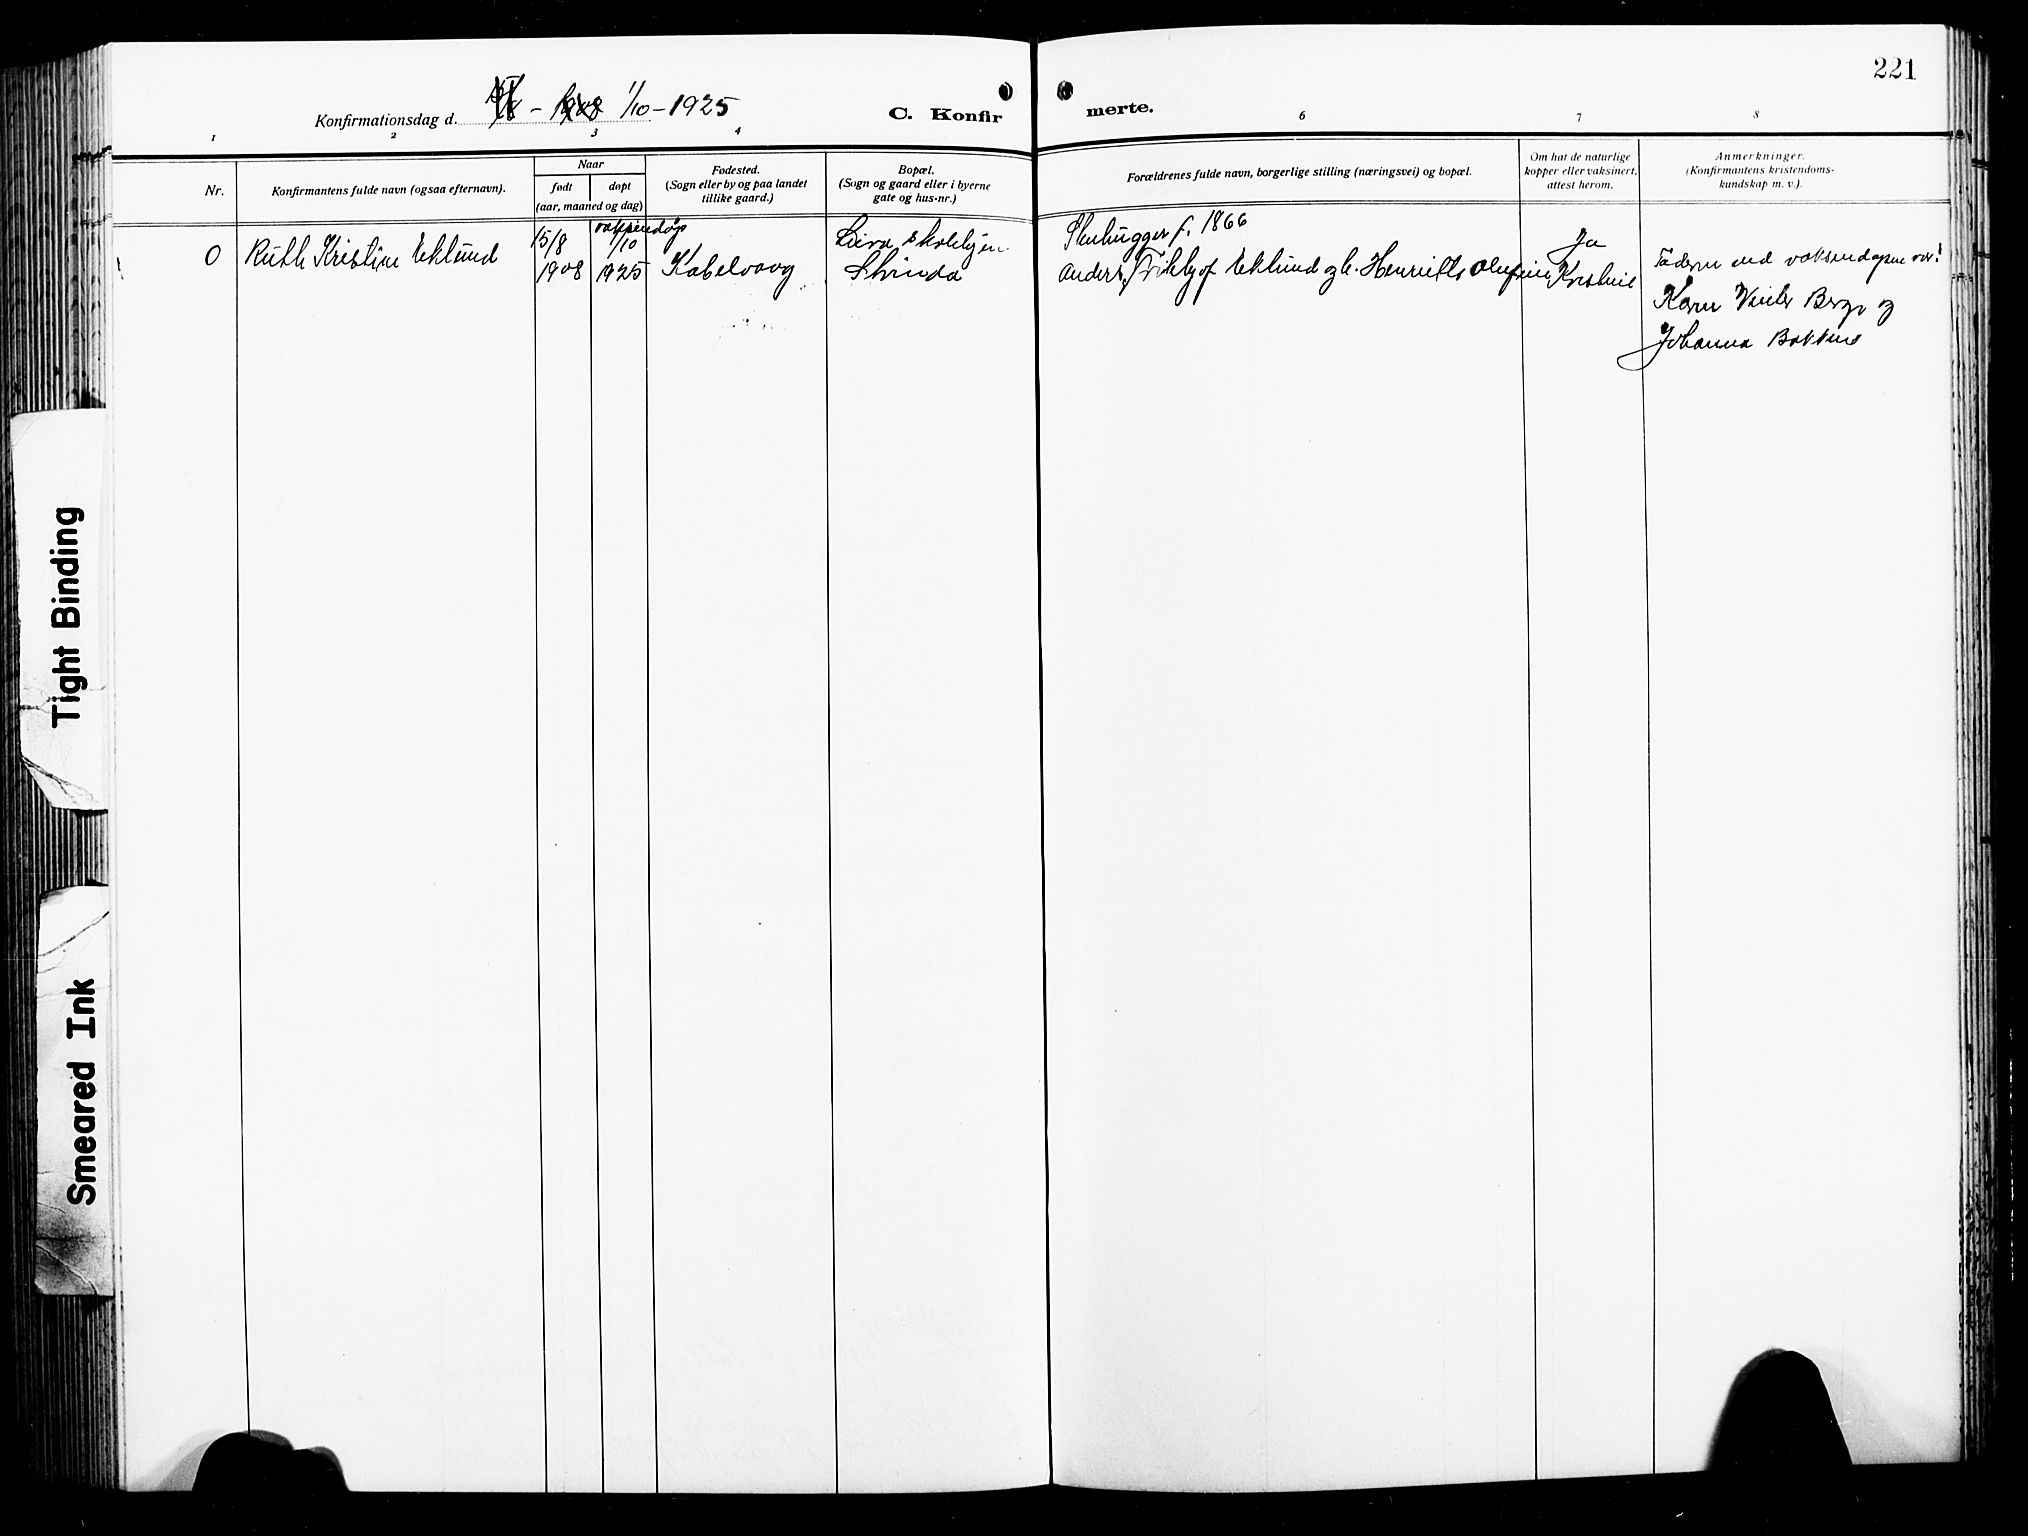 221
Konfirmationsdag d. 1/10 - 1925
C. Konfir
merte.
1 2 3 4 6 7 8
Nr.
Konfirmantens fulde navn (ogsaa efternavn).
Naar
født
døpt
(aar, maaned og dag)
Fødested.
(Sogn eller by og paa landet
tillike gaard.)
Bopæl.
(Sogn og gaard eller i byerne
gate og hus-nr.)
Forældrenes fulde navn, borgerlige stilling (næringsvei) og bopæl.
Om hat de naturlige
kopper eller vaksinert,
attest herom.
Anmerkninger.
(Konfirmantens kristendoms-
kundskap m. v.).
0
Ruth Kristine Eklund
15/8
1908
1/10
1925
Kabelvaag
Leira skolehjem
Strinda
Stenhugger f. 1866
Anders Frithjof Eklund og h. Henriette Olufine Kristine
Ja
Fadderne ved voksendaapen var:
Karen Bergs og
Johanna Bakkens
Tight Binding
Smeared Ink